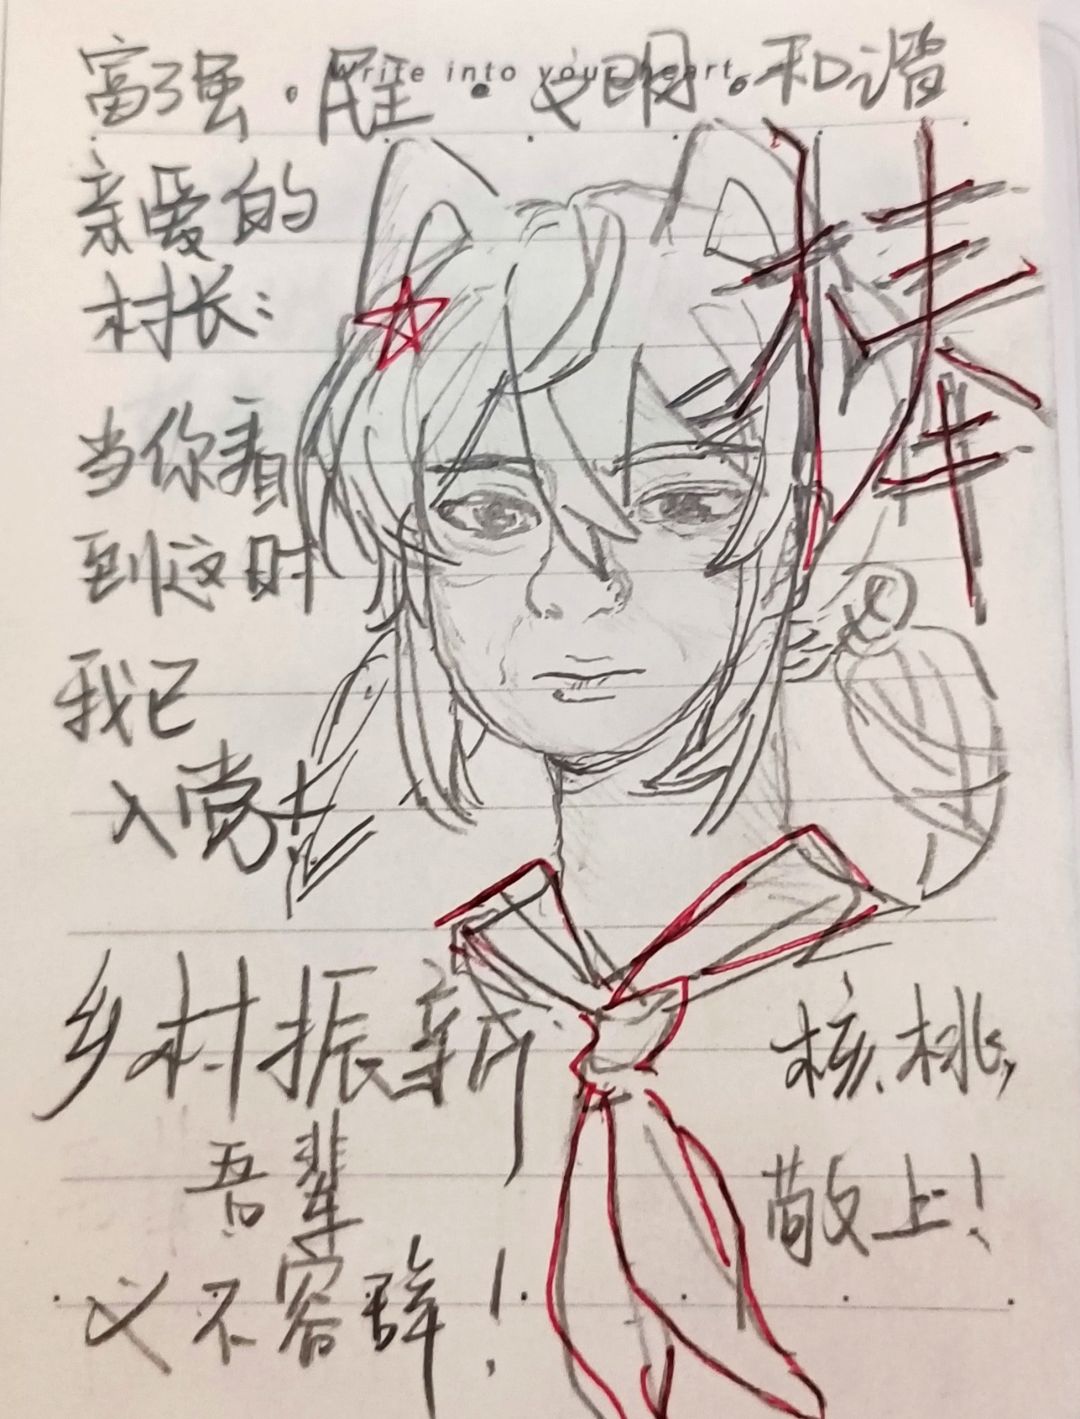 Write into your heart.
富强·民主·文明·和谐
亲爱的
村长：
棒
当你看
到这时
我已
入党
乡村振新
核桃
吾辈
敬上！
义不容辞！